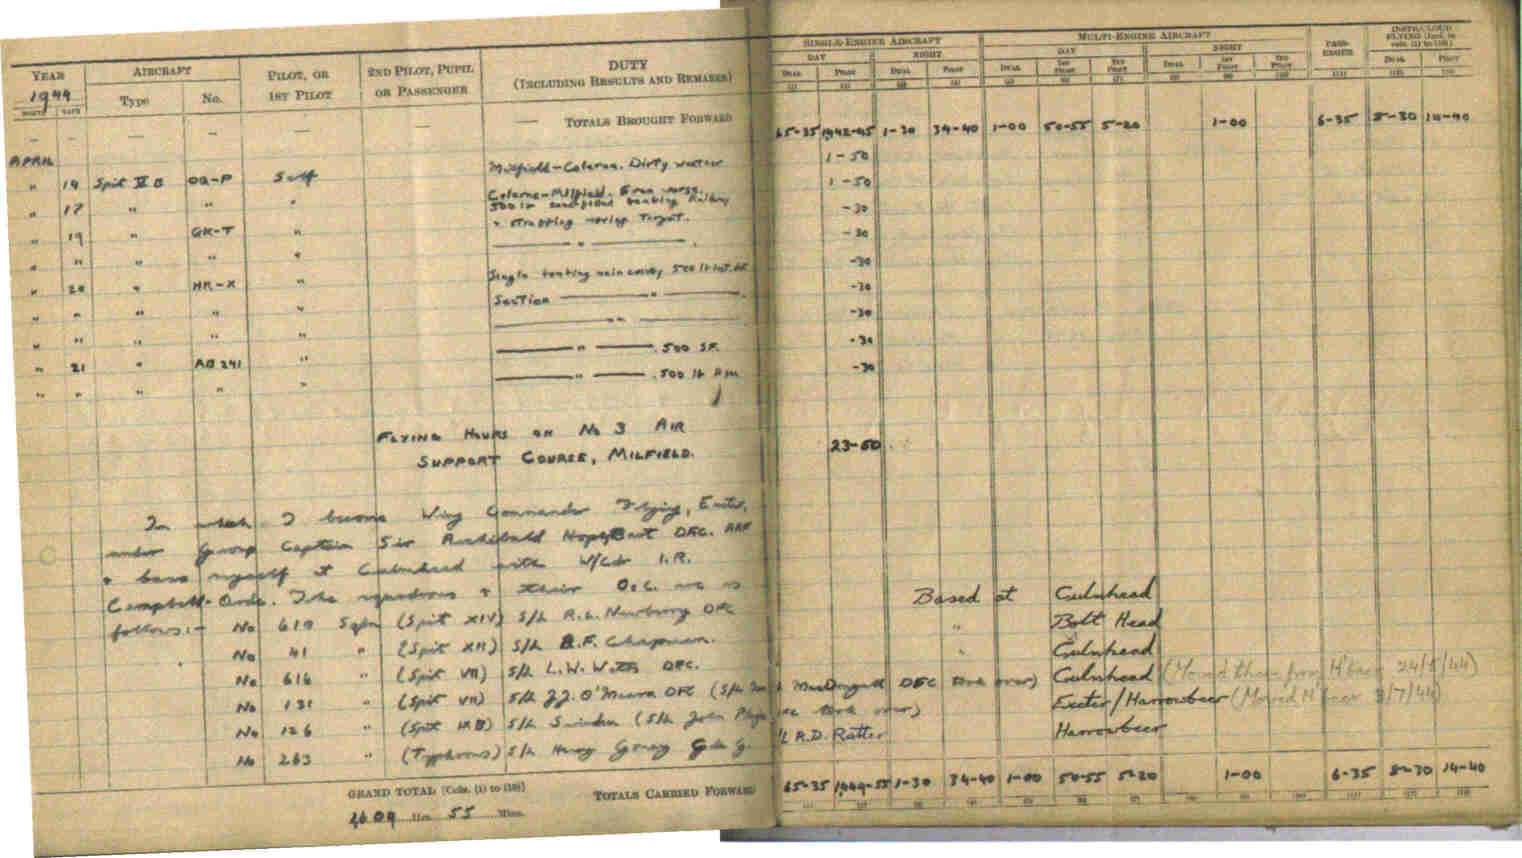 YEAR
1944
MONTH DATE
AIRCRAFT
Type No.
PILOT, OR
1ST PILOT
2ND PILOT, PUPIL
OR PASSENGER
DUTY
(INCLUDING RESULTS AND REMARKS)
SINGLE-ENGINE AIRCRAFT
DAY NIGHT
DUAL PILOT DUAL PILOT
(1) (2) (3) (4)
MULTI-ENGINE AIRCRAFT
DAY NIGHT
DUAL 1ST PILOT 2ND PILOT DUAL 1ST PILOT 2ND PILOT
PASS-
ENGER
DUAL PILOT
— — — — — — — TOTALS BROUGHT FORWARD 65-35 1942-45 1-30 34-40 1-00 50-55 5-20 1-00 6-35 8-30 14-40
APRIL
" 14 Spit VB OQ-P Self Milfield-Colerne. Dirty weather 1-50
" 17 " " " Colerne-Milfield. Even worse. 1-50
500 lb bombing Railway
" 19 " GK-T " + strafing moving Target. -30
" " " " " — " — -30
" 20 " HK-X " Single bombing main convoy 500 lb -30
" " " " " Section — " — -30
" " " " " — " — -30
" 21 " AB 241 " — " — .500 SF. -30
" " " " " — " — .500 lb -30
FLYING HOURS ON No 3 AIR
SUPPORT COURSE, MILFIELD. 23-50
In which I become Wing Commander Flying, Exeter,
under Group Captain Sir Archibald Hope, Bart DFC. AAF
+ base myself at Culmhead with W/Cdr I.R.
Campbell-Orde. The squadrons + their O.C. are as
follows:-
No 610 Sqdn (Spit XIV) S/L R.A. Newbury DFC Based at Culmhead
No 41 " (Spit XII) S/L R.F. Chapman. " Bolt Head
No 616 " (Spit VII) S/L L.W. Watts DFC. " Culmhead
No 131 " (Spit VII) S/L J.J. O'Meara DFC (S/L MacDougall DFC took over) Culmhead (Moved there from H'beer 24/5/44)
No 126 " (Spit IXB) S/L Swinden (S/L John took over) Exeter/Harrowbeer (Moved H'beer 3/7/44)
No 263 " (Typhoons) S/L Henry Gonay R.D. Rutter Harrowbeer
GRAND TOTAL [Cols. (1) to (10)]
Hrs. 55 Mins.
TOTALS CARRIED FORWARD 65-35 1,949-55 1-30 34-40 1-00 50-55 5-20 1-00 6-35 8-30 14-40